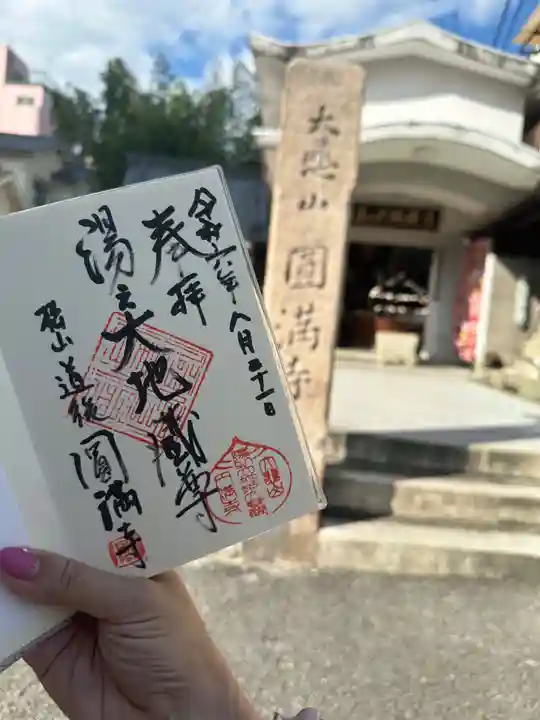 令和六年八月三十一日
奉拝
湯之大地蔵尊
松山道後圓満寺
大悲山圓満寺